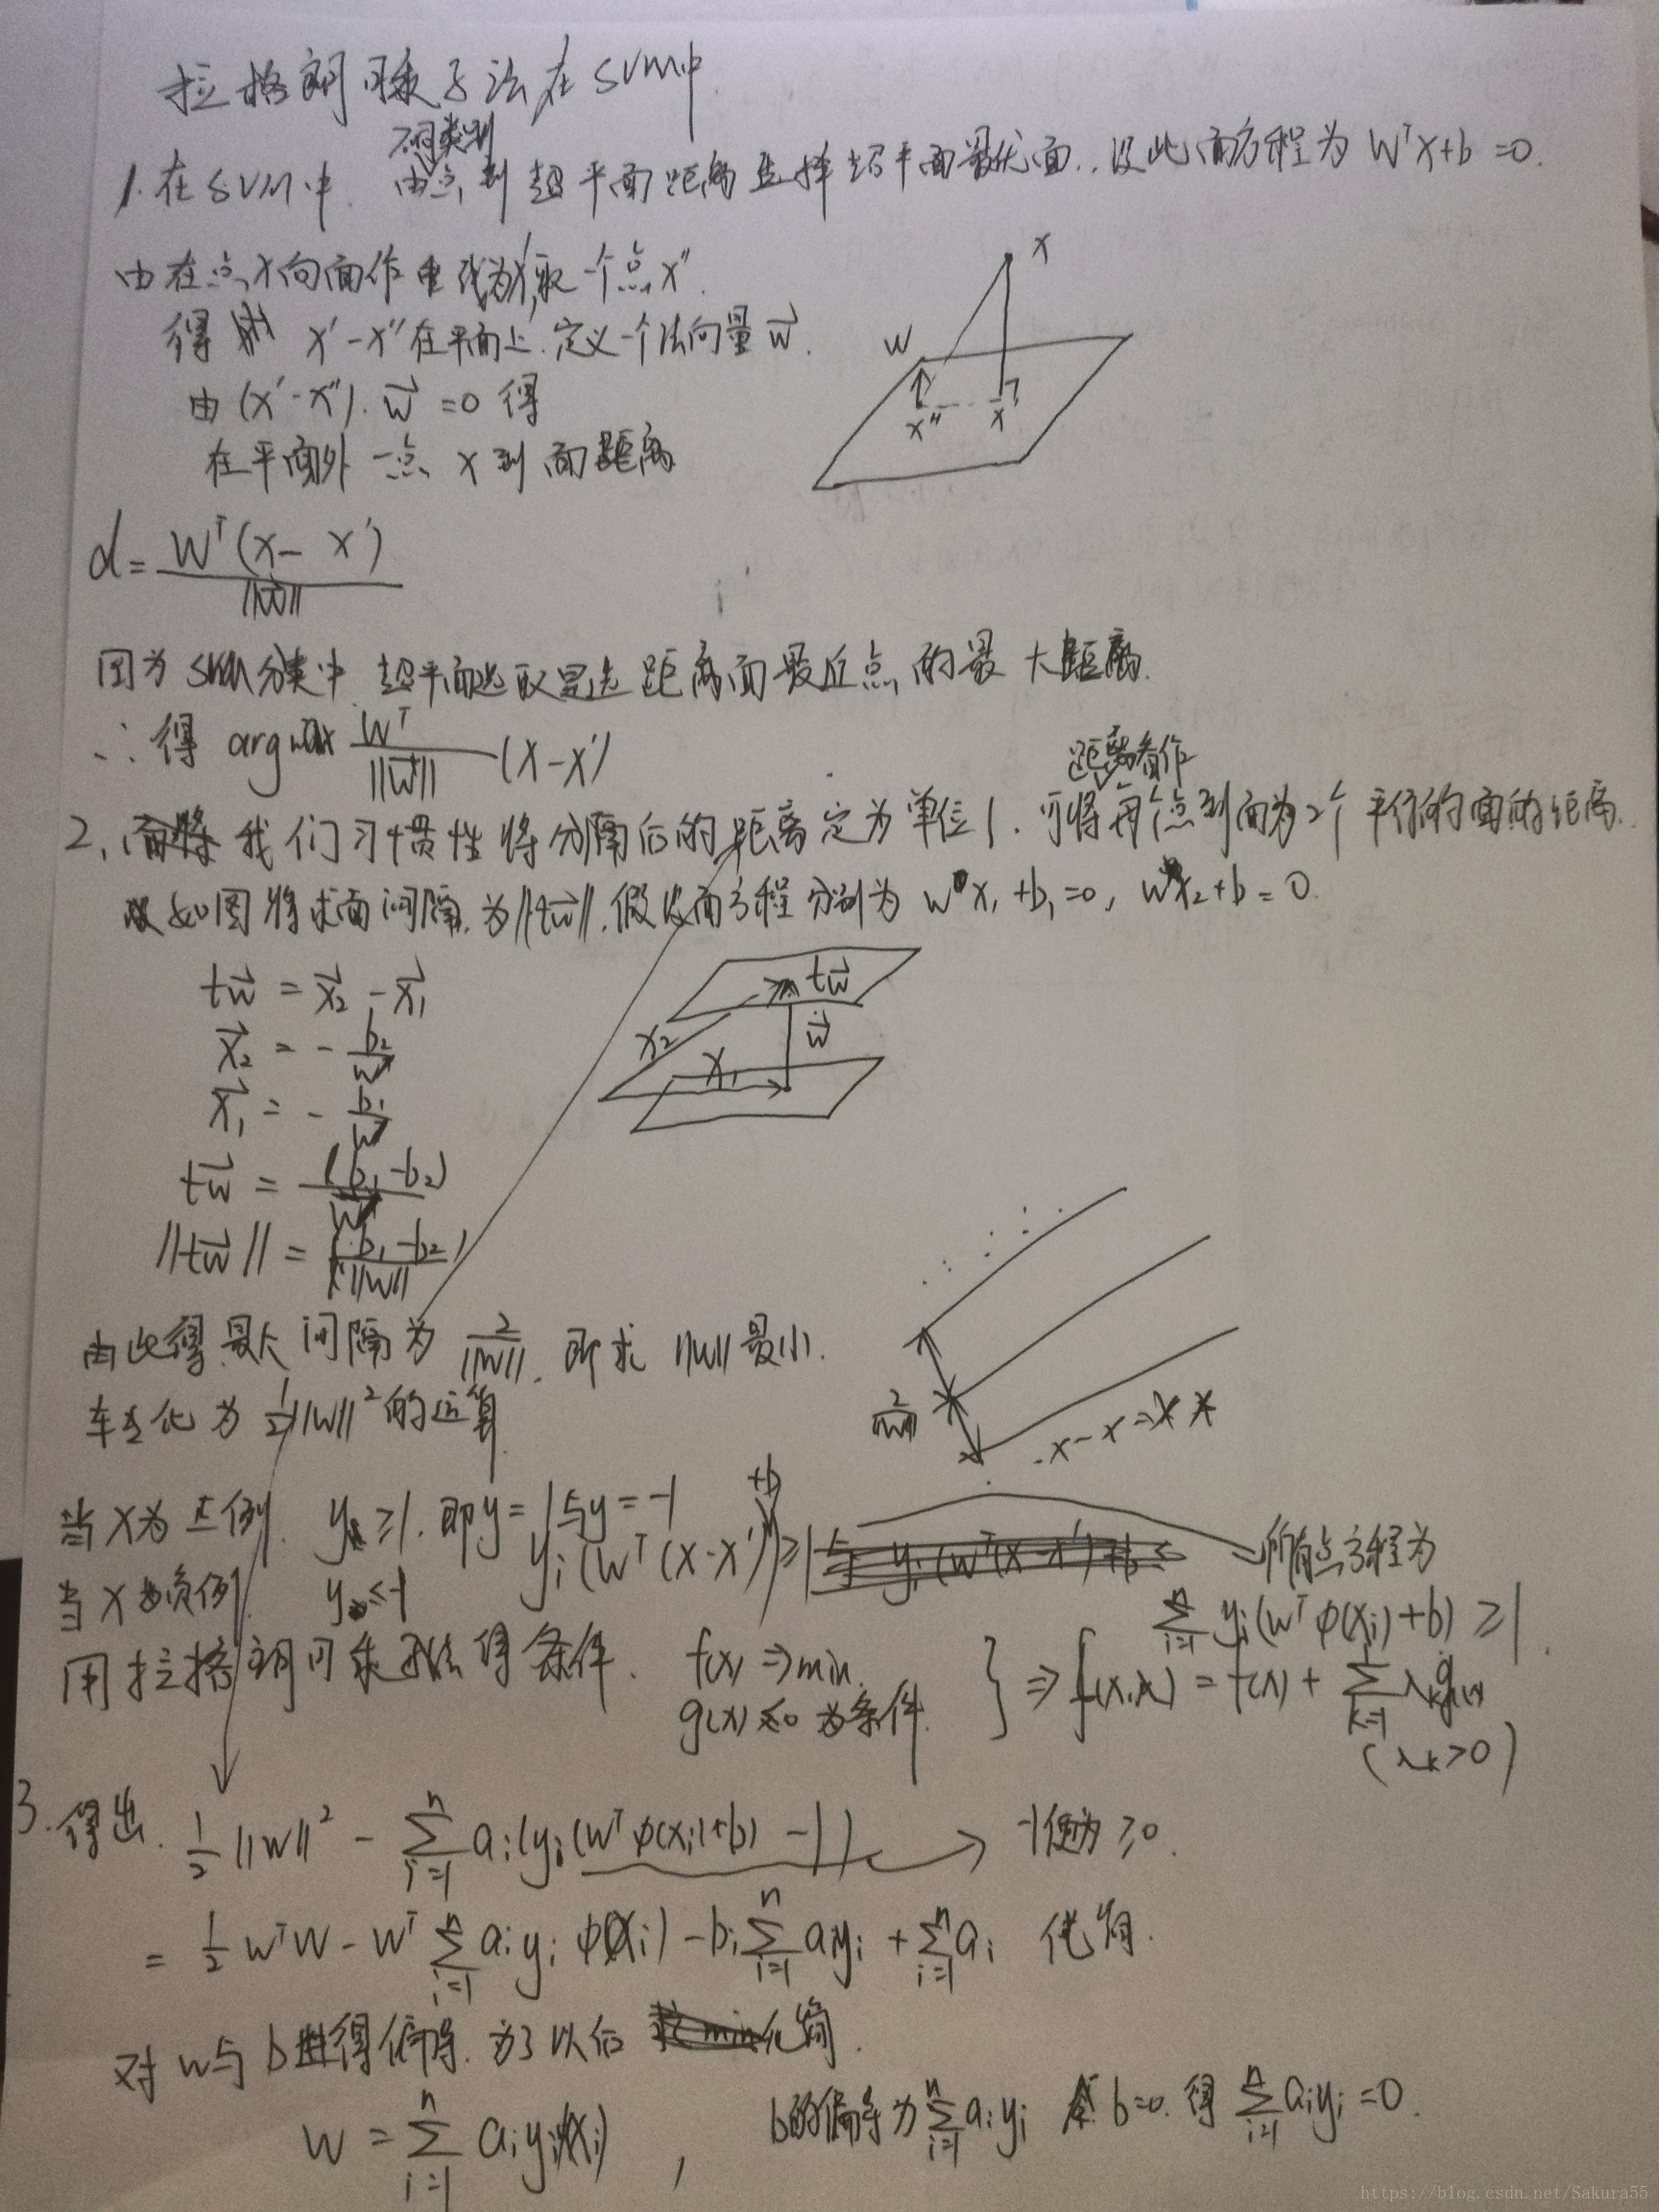 拉格朗日乘子法在SVM中
不同类别
1. 在SVM中. 由点到超平面距离选择超平面最优面.. 设此面方程为 WᵀX+b=0.
由在点X向面作垂线为X',取一个点X''.
得 X'-X''在平面上.定义一个法向量w⃗.
由 (X'-X'')·w⃗=0 得
在平面外一点 X 到面距离
X
W
X''
X'
d = Wᵀ(X-X') / ||w⃗||
因为SVM分类中 超平面选取是选距离面最近点的最大距离.
∴ 得 argmax Wᵀ/||w⃗|| (X-X')
距离看作
2. 我们习惯性将分隔后的距离定为单位1. 可将每个点到面为2个平行的面的距离.
如图将求面间隔.为||tw⃗||.假设面方程分别为 wx₁+b₁=0, wx₂+b=0.
tw⃗ = x⃗₂ - x⃗₁
x⃗₂ = - b₂/w⃗
x⃗₁ = - b₁/w⃗
tw⃗ = (b₁-b₂)/w⃗
||tw⃗|| = (b₁-b₂)/||w||
tw⃗
x₂
w⃗
x₁
由此得最大间隔为 2/||w||. 即求 ||w||最小.
转化为 ½||w||²的运算.
2/||w||
当X为正例. y ≥1. 即y=1与y=-1
当X为负例. y ≤-1
+b
yᵢ(wᵀ(x-x'))≥1
所有点方程为
∑ⁿᵢ₌₁ yᵢ(wᵀφ(xᵢ)+b) ≥1.
用拉格朗日乘子法得条件. f(x) ⇒min.
g(x)≤0 为条件.
} ⇒ f(x,λ) = f(x) + ∑ₖ₌₁ λₖgₖ(x)
(λₖ>0)
3. 得出. ½||w||² - ∑ⁿᵢ₌₁ aᵢ(yᵢ(wᵀφ(xᵢ)+b) -1) → -1便为≥0.
= ½wᵀw - wᵀ∑ⁿᵢ₌₁ aᵢyᵢφ(xᵢ) - bᵢ∑ⁿᵢ₌₁ aᵢyᵢ + ∑ⁿᵢ₌₁aᵢ 化简.
对 w与b 得偏导. 为了以后 化简.
w = ∑ⁿᵢ₌₁ aᵢyᵢφ(xᵢ) , b的偏导为∑ⁿᵢ₌₁aᵢyᵢ 令b=0. 得 ∑ⁿᵢ₌₁aᵢyᵢ=0.
https://blog.csdn.net/Sakura55